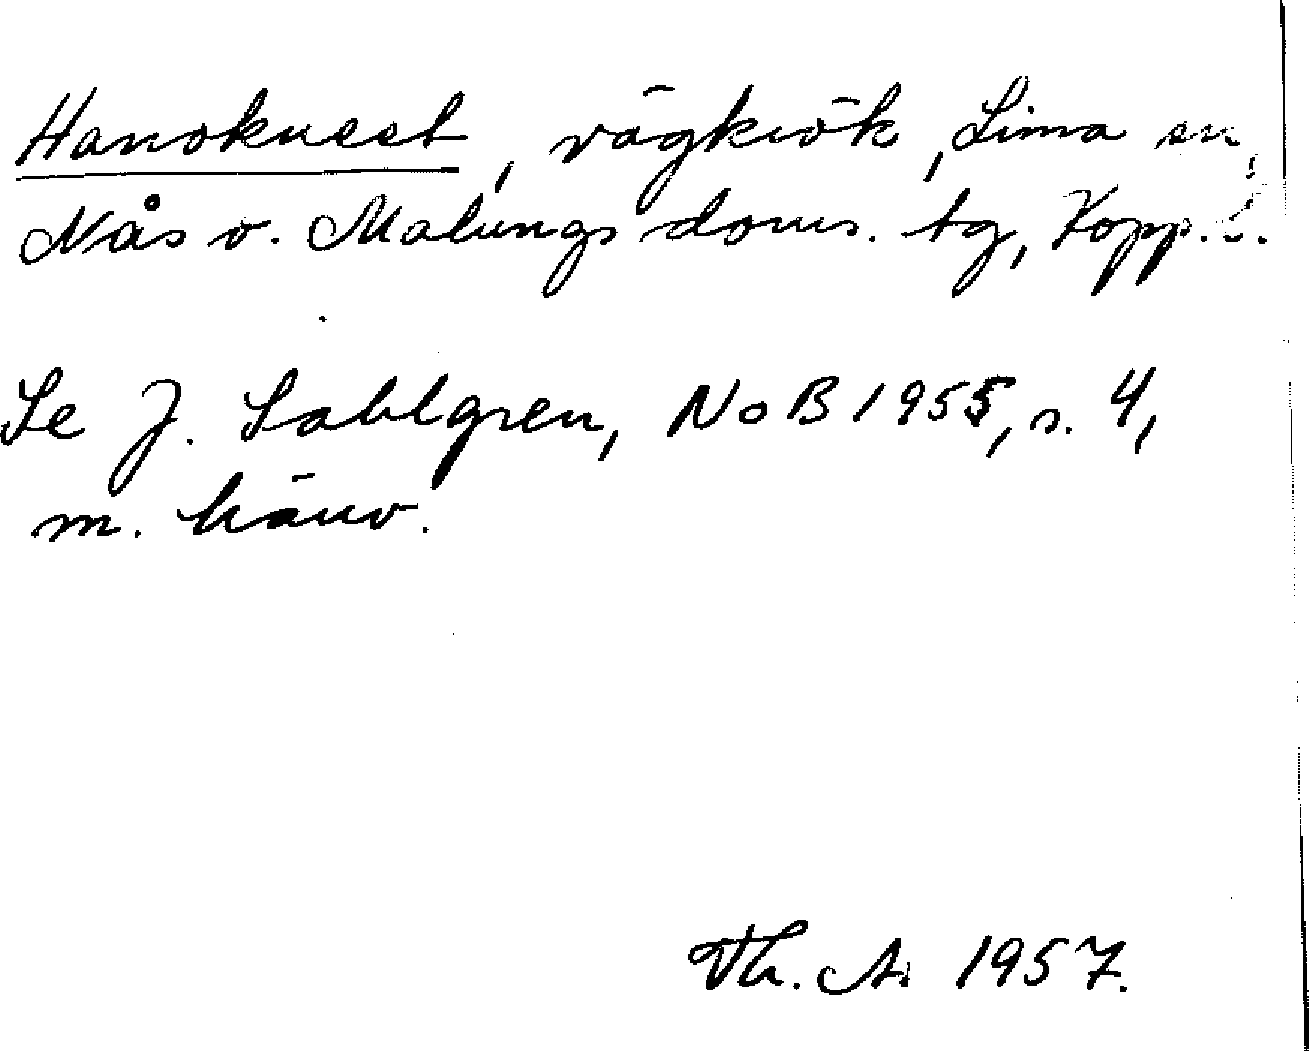 Hanoknest, vägkrök, Lima sn,
Nås o. Malungs doms. tg, Kopp. l.
Se J. Sahlgren, NoB 1955, s. 4,
m. hänv.
Th. A. 1957.